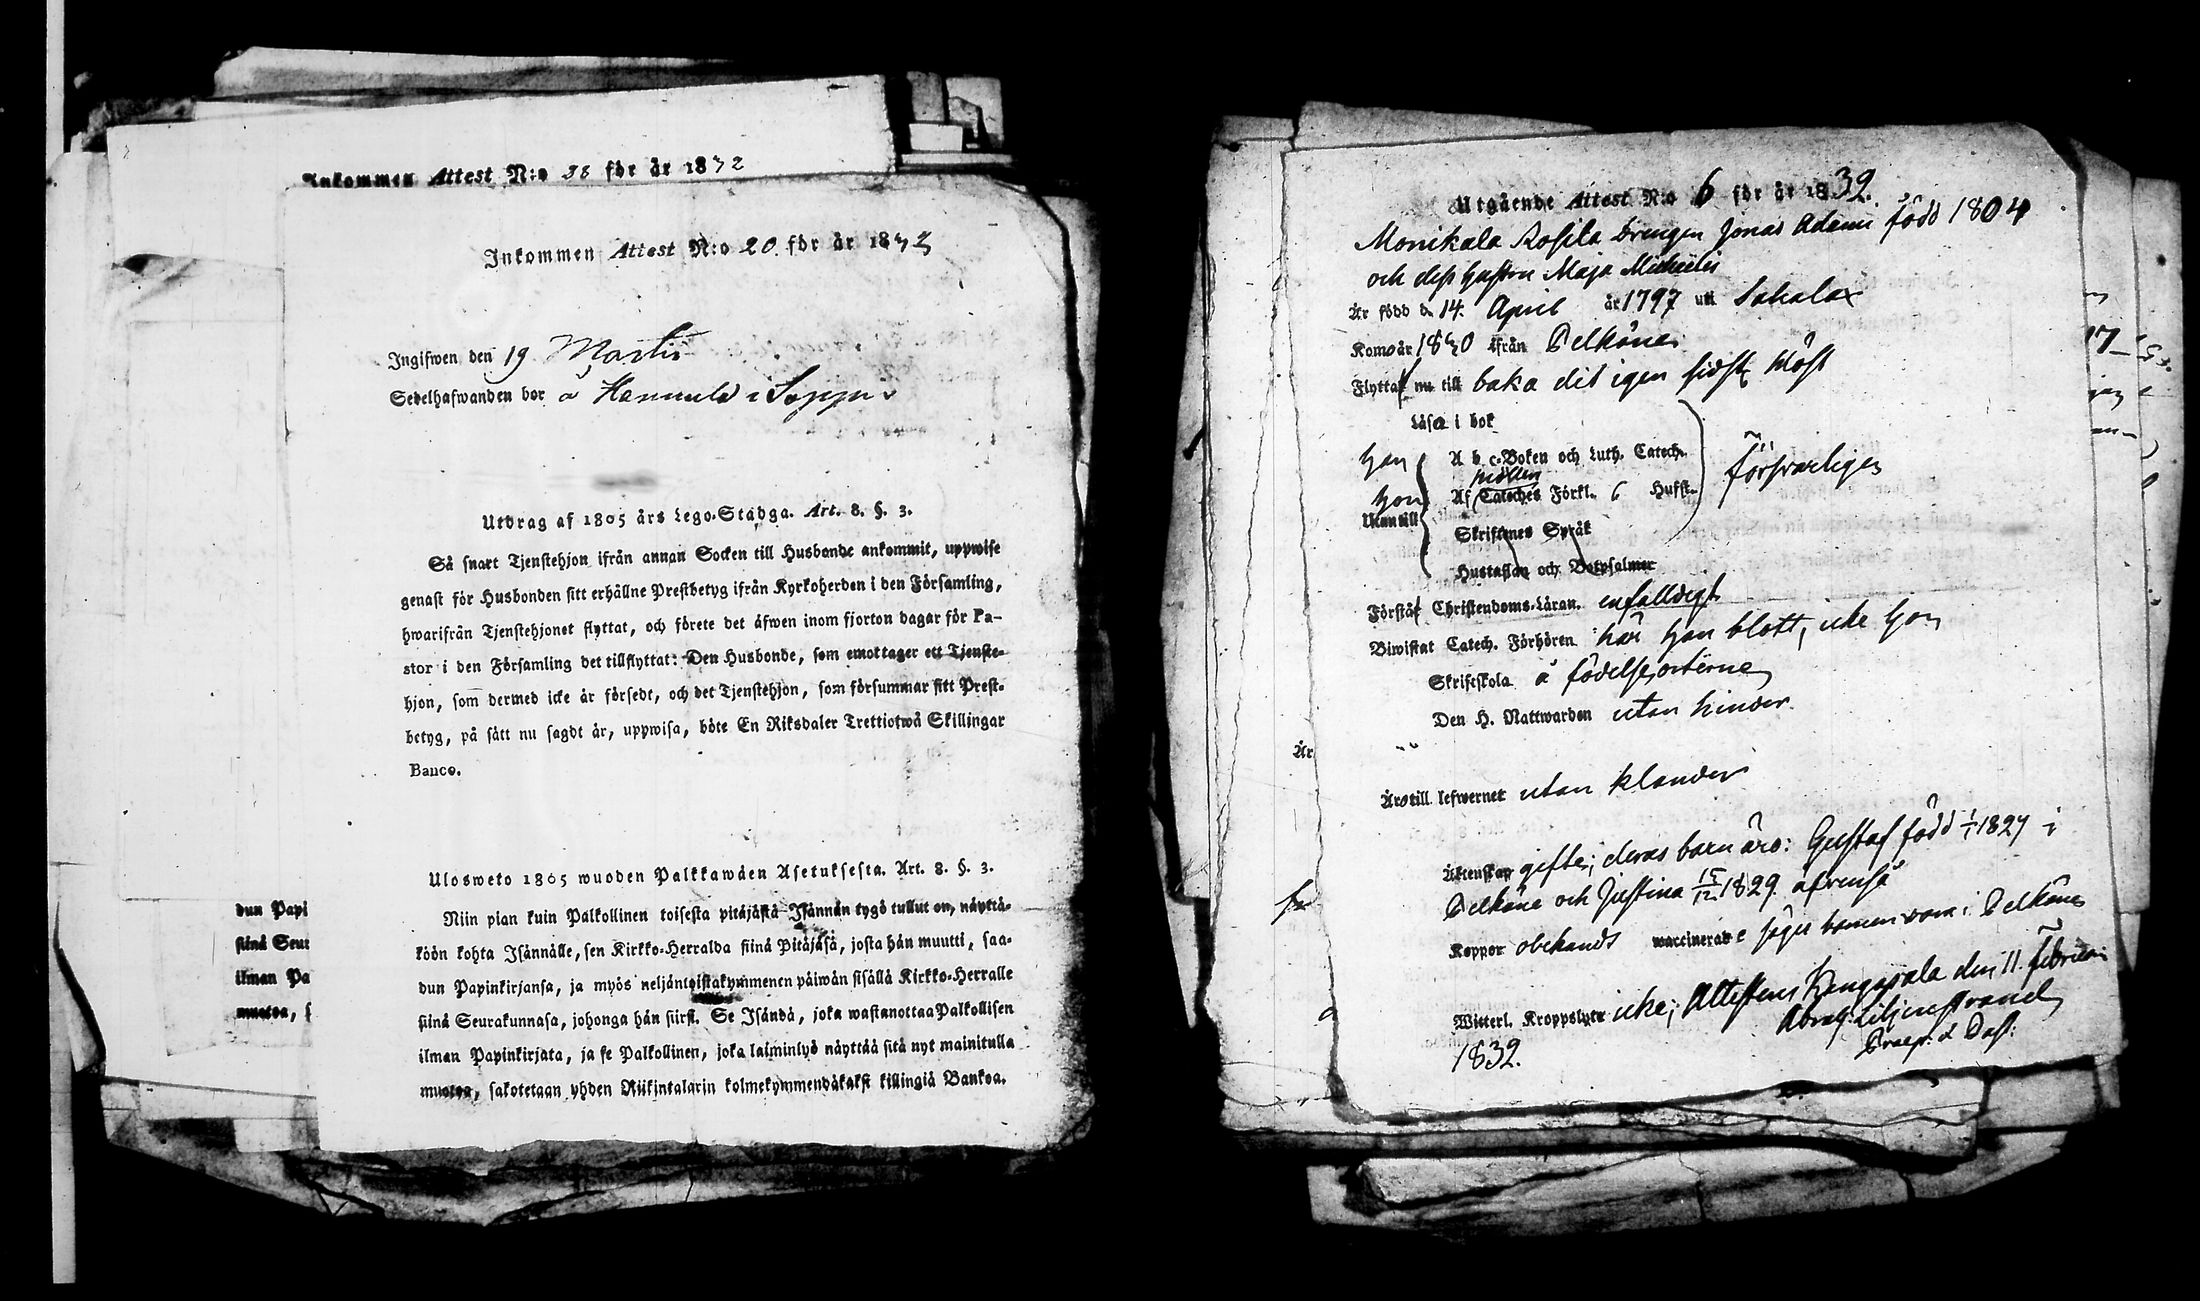 Inkommen Attest N:o 38 för år 1832
Inkommen Attest N:o 20. för år 1833
Ingifwen den 19 Martii
Sedelhafwanden bor å
Utdrag af 1805 års Lego-Stadga. Art. 8. §. 3.
Så snart Tjenstehjon ifrån annan Socken till Husbonde ankommit, uppwise
genast för Husbonden sitt erhållne Prestbetyg ifrån Kyrkoherden i den Församling,
hwarifrån Tjenstehjonet flyttat, och förete det åfwen inom fjorton dagar för Pa-
stor i den Församling det tillflyttat: Den Husbonde, som emottager ett Tjenste-
hjon, som dermed icke är försedt, och det Tjenstehjon, som försummar sitt Prest-
betyg, på sått nu sagdt är, uppwisa, böte En Riksdaler Trettiotwå Skillingar
Banco.
Ulosweto 1805 wuoden Palkkawåen Asetuksesta. Art. 8. §. 3.
Niin pian kuin Palkollinen toisesta pitåjåstå Isånnån tygö tullut on, nåyttå-
köön kohta Isånnålle, sen Kirkko-Herralda siinå Pitåjåså, josta hån muutti, saa-
dun Papinkirjansa, ja myös neljåntoistakymmenen påiwån sisållå Kirkko-Herralle
siinå Seurakunnasa, johonga hån siirsi. Se Isåndå, joka wastanottaa Palkollisen
ilman Papinkirjata, ja se Palkollinen, joka laiminlyö nåyttåå sitå nyt mainitulla
muotoa, sakotetaan yhden Riikintalarin kolmekymmendåkaksi killingiå Bankoa.
dun Papi
siinå Seur
ilman Pa
muotoa, s
Utgående Attest N:o 6 för år 1832.
Monikala Rosila Drengen Jonas Adami född 1804
och dess hustru Maja Michelis
Är född d. 14. April år 1797 uti Sahalax
Kom år 1830 ifrån Pelkäne
Flytta nu till baka dit igen sidst höst
Läsa i bok
Han A b c-Boken och Luth. Catech.
Hon Af Cateches Förkl. 6 Hufst. Försvarligen
Utantill
Skriftenes Språk
Hustaflan och Botpsalmer
Förstår Christendoms-Läran. enfalldigt
Biwistat Catech. Förhören har han blott, icke hon
Skriftskola å födelseorterne
Den H. Nattwarden utan hinder.
År
Är till lefwernet utan klander
Äktenskap gifte; deras barn äro: Gustaf född 1/1 1827 i
Pelkäne och Justina 15/12 1829. äfvenså
Koppor obekandt waccinerade säges barnen vara i Pelkäne
Witterl. Kroppslyte icke; Attesteras Kengasala den 11. Februarii
1832. Abrah: Liljenstrand
Praep. & Past: